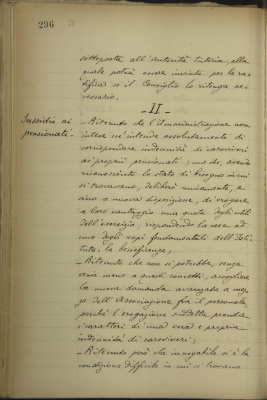 296
sottoposta all'Autorità tutoria, alla
quale potrà essere inviata per la ra-
tifica se il Consiglio lo ritenga ne-
cessario.
- II -
Sussidio ai
pensionati.
- Ritenuto che l'Amministrazione non
intese nè intende assolutamente di
corrispondere indennità di caroviveri
ai proprii pensionati; ma che, avendo
riconosciuto lo stato di bisogno in cui
si trovavano, deliberò unicamente, e
sino a nuova disposizione, di erogare
a loro vantaggio una quota degli utili
dell'esercizio, rispondendo la cosa ad
uno degli scopi fondamentali dell'Isti-
tuto, la beneficenza;
- Ritenuto che non si potrebbe, senza
venir meno a questi concetti, accogliere
la nuova domanda avanzata a mez-
zo dell'Associazione fra il personale,
perchè l'erogazione suddetta prenda
i caratteri di una vera e propria
indennità di caroviveri;
- Ritenuto però che innegabile si è la
condizione difficile in cui si trovano